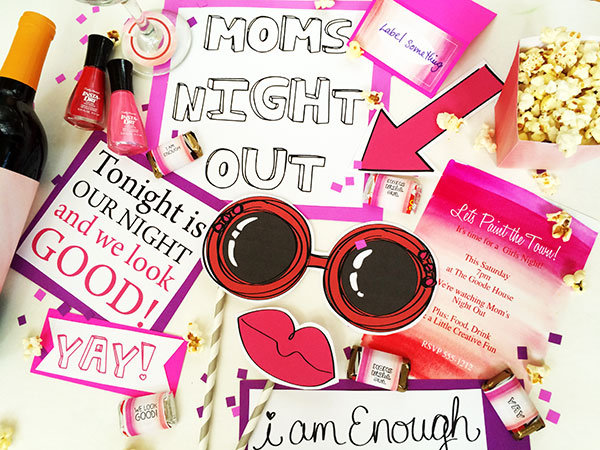 MOMS
NIGHT
OUT
Label Something
INSTA-
DRI
INSTA-
DRI
I AM
ENOUGH
Tonight is
OUR NIGHT
and we look
GOOD!
Let's Paint the Town!
It's time for a Girls Night!
This Saturday
7pm
at The Goode House
We're watching Mom's
Night Out
Plus: Food, Drink
& a Little Creative Fun
RSVP 555-1212
YAY!
WE LOOK
GOOD!
YAY!
i am Enough